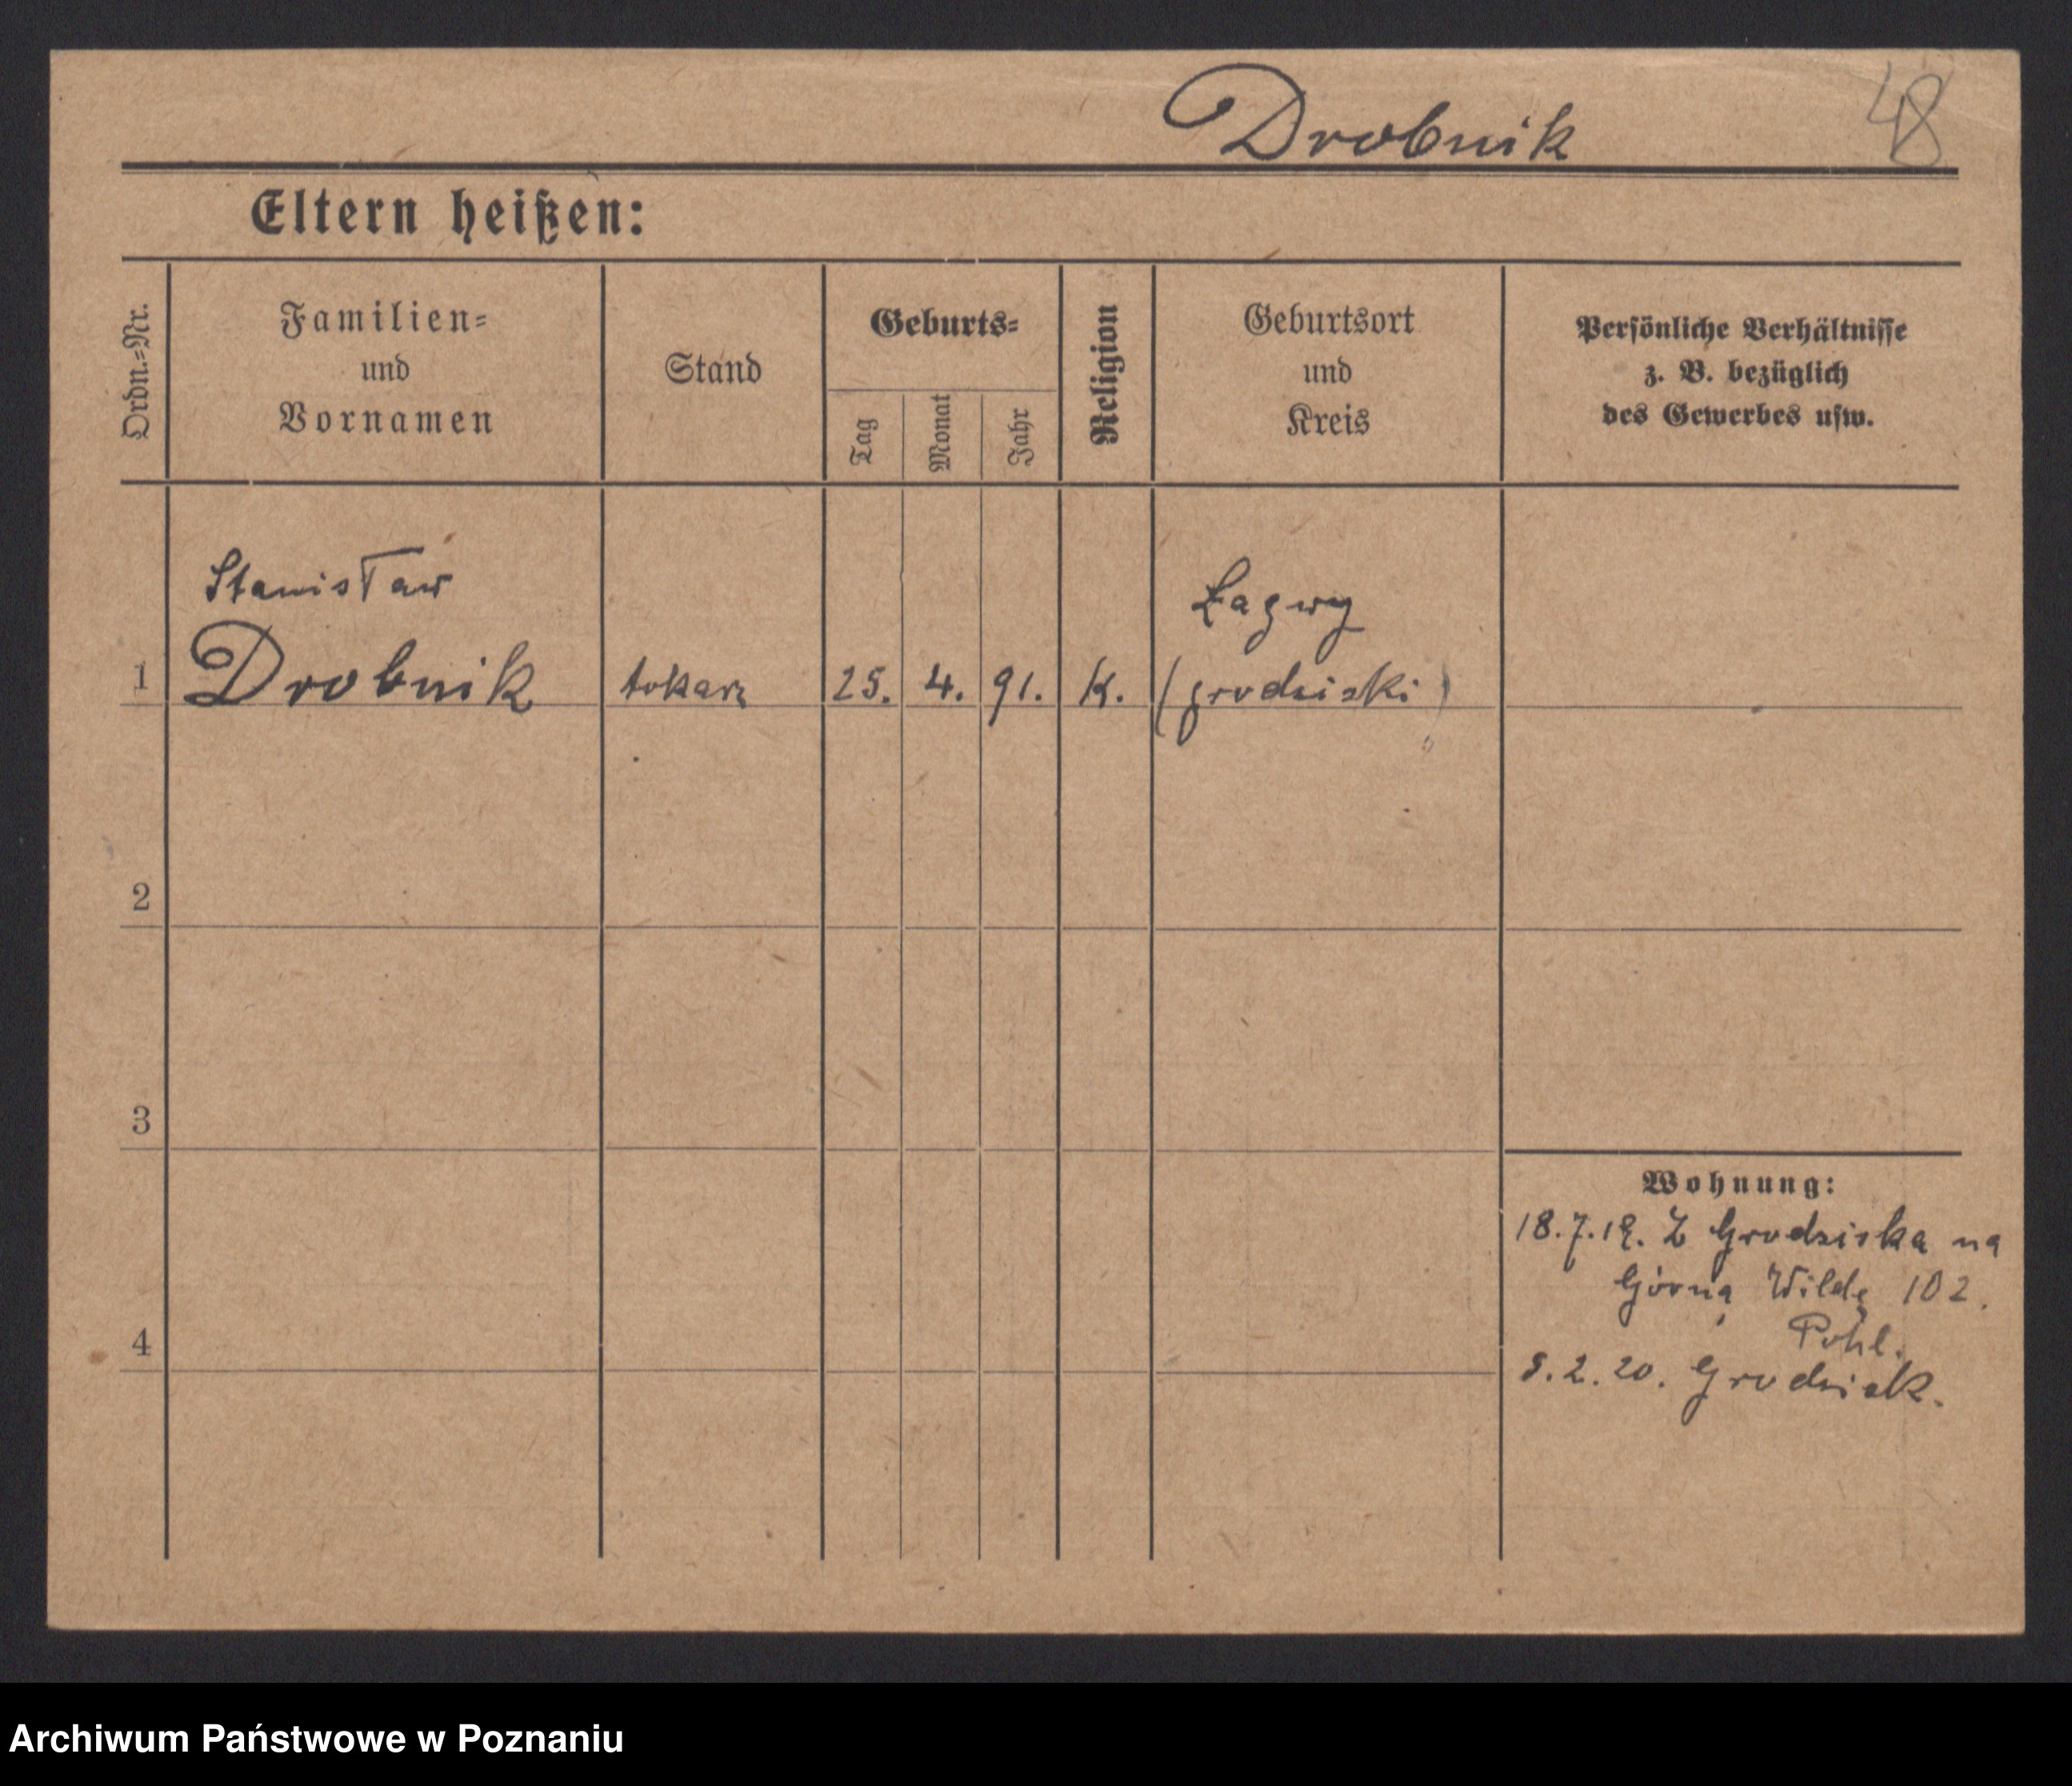 Drobnik 48
Eltern heißen:
Ordn.=Nr.
Familien=
und
Vornamen
Stand
Geburts=
Tag
Monat
Jahr
Religion
Geburtsort
und
Kreis
Persönliche Verhältnisse
z. B. bezüglich
des Gewerbes usw.
Stanisław
Łagwy
1 Drobnik tokarz 25. 4. 91. K. (grodziski)
2
3
Wohnung:
18.7.19. Z Grodziska na
Górną Wildę 102.
Pohl.
4
5.2.20. Grodzisk.
Archiwum Państwowe w Poznaniu